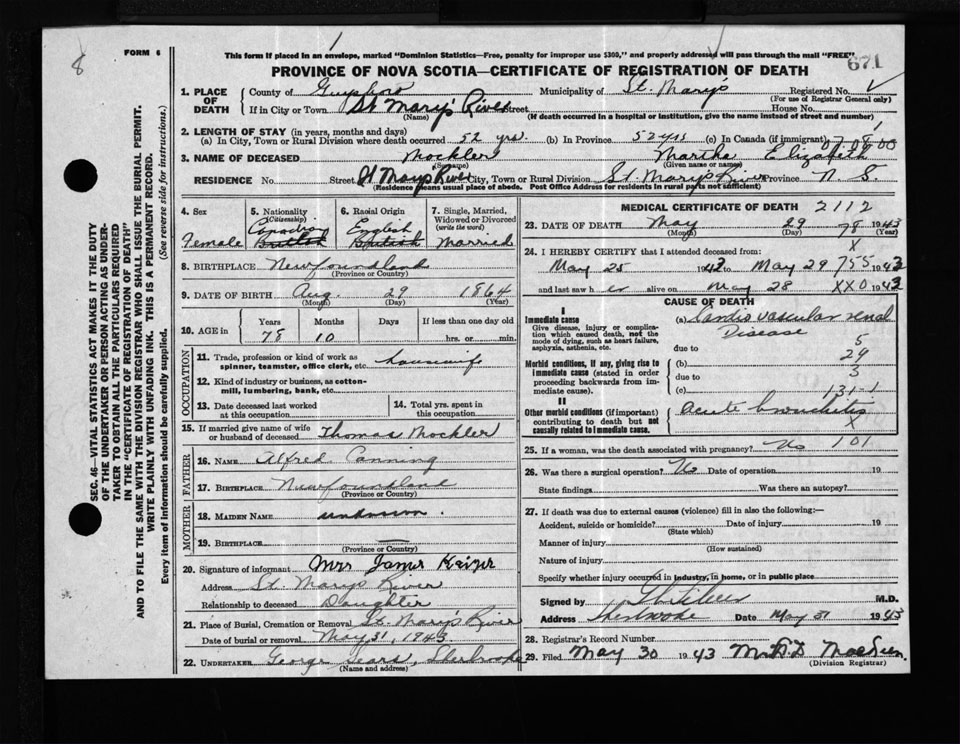 FORM 6
8
This form if placed in an envelope, marked "Dominion Statistics—Free, penalty for improper use $300," and properly addressed will pass through the mail "FREE"
671
PROVINCE OF NOVA SCOTIA—CERTIFICATE OF REGISTRATION OF DEATH
1. PLACE OF DEATH County of Guysboro Municipality of St. Mary's Registered No.
(For use of Registrar General only)
If in City or Town St Mary's River Street House No.
(Name) (If death occurred in a hospital or institution, give the name instead of street and number)
2. LENGTH OF STAY (in years, months and days)
(a) In City, Town or Rural Division where death occurred 52 yrs. (b) In Province 52 yrs (c) In Canada (if immigrant)
3. NAME OF DECEASED Mockler Martha Elizabeth
(Surname) (Given name or names)
RESIDENCE No. Street St Marys River City, Town or Rural Division St. Mary's River Province N. S.
(Residence means usual place of abode. Post Office Address for residents in rural parts not sufficient)
4. Sex Female
5. Nationality (Citizenship) Canadian British
6. Racial Origin English British
7. Single, Married, Widowed or Divorced (write the word) Married
8. BIRTHPLACE Newfoundland
(Province or Country)
9. DATE OF BIRTH Aug. 29 1864
(Month) (Day) (Year)
10. AGE in Years Months Days If less than one day old
78 10 hrs. or min.
OCCUPATION
11. Trade, profession or kind of work as spinner, teamster, office clerk, etc. housewife
12. Kind of industry or business, as cotton-mill, lumbering, bank, etc.
13. Date deceased last worked at this occupation
14. Total yrs. spent in this occupation
15. If married give name of wife or husband of deceased Thomas Mockler
FATHER
16. NAME Alfred Canning
17. BIRTHPLACE Newfoundland
(Province or Country)
MOTHER
18. MAIDEN NAME unknown.
19. BIRTHPLACE —
(Province or Country)
20. Signature of informant Mrs James Keizer
Address St. Marys River
Relationship to deceased Daughter
21. Place of Burial, Cremation or Removal St. Mary's River
Date of burial or removal May 31, 1943.
22. UNDERTAKER George Sears, Sherbrooke
(Name and address)
MEDICAL CERTIFICATE OF DEATH 2112
23. DATE OF DEATH May 29 1943
78
(Month) (Day) (Year)
24. I HEREBY CERTIFY that I attended deceased from: X
May 25 1943 to May 29 755 1943
and last saw her alive on May 28 XX0 1943
CAUSE OF DEATH
I
Immediate cause
Give disease, injury or complication which caused death, not the mode of dying, such as heart failure, asphyxia, asthenia, etc.
(a) Cardio vascular renal
Disease
due to 5
29
Morbid conditions, if any, giving rise to immediate cause (stated in order proceeding backwards from immediate cause).
(b)
due to 3
(c) 131-1
II
Other morbid conditions (if important) contributing to death but not causally related to immediate cause.
Acute bronchitis
X
25. If a woman, was the death associated with pregnancy? No 101
26. Was there a surgical operation? No Date of operation 19
State findings Was there an autopsy?
27. If death was due to external causes (violence) fill in also the following:—
Accident, suicide or homicide? Date of injury 19
(State which)
Manner of injury
(How sustained)
Nature of injury
Specify whether injury occurred in industry, in home, or in public place
Signed by M.D.
Address Sherbrooke Date May 31 1943
28. Registrar's Record Number
29. Filed May 30 1943
(Division Registrar)
SEC. 46—VITAL STATISTICS ACT MAKES IT THE DUTY
OF THE UNDERTAKER OR PERSON ACTING AS UNDER-
TAKER TO OBTAIN ALL THE PARTICULARS REQUIRED
IN THE "CERTIFICATE OF REGISTRATION OF DEATH"
AND TO FILE THE SAME WITH THE DIVISION REGISTRAR WHO SHALL ISSUE THE BURIAL PERMIT.
WRITE PLAINLY WITH UNFADING INK. THIS IS A PERMANENT RECORD.
Every item of information should be carefully supplied. (See reverse side for instructions.)